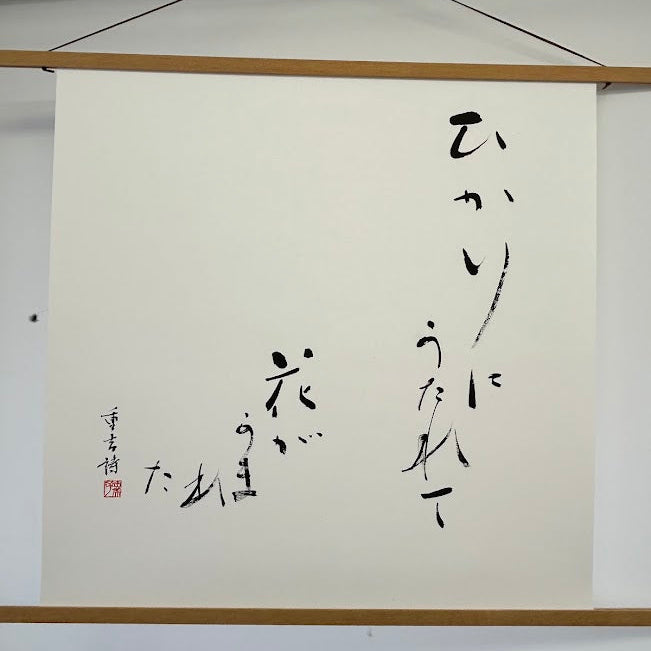 ひかりに
うたれて
花が
うまれた
重吉詩